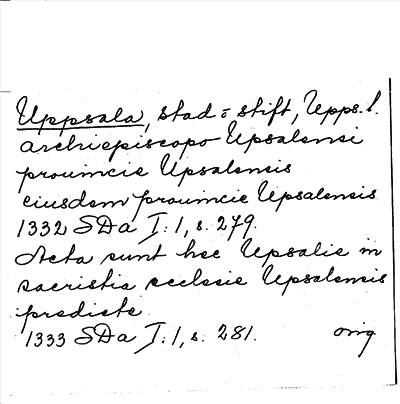 Uppsala, stad = stift, Upps. l.
archiepiscopo Upsalensi
prouincie Upsalensis
eiusdem prouincie Upsalensis
1332 SDa I:1, s. 279.
Acta sunt hec Upsalie in
sacristia ecclesie Upsalensis
predicte
1333 SDa I:1, s. 281. orig